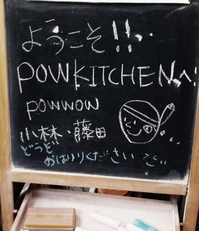 ようこそ!!
POWKITCHENへ
powwow
小林・藤田
どうぞ
おはいりください